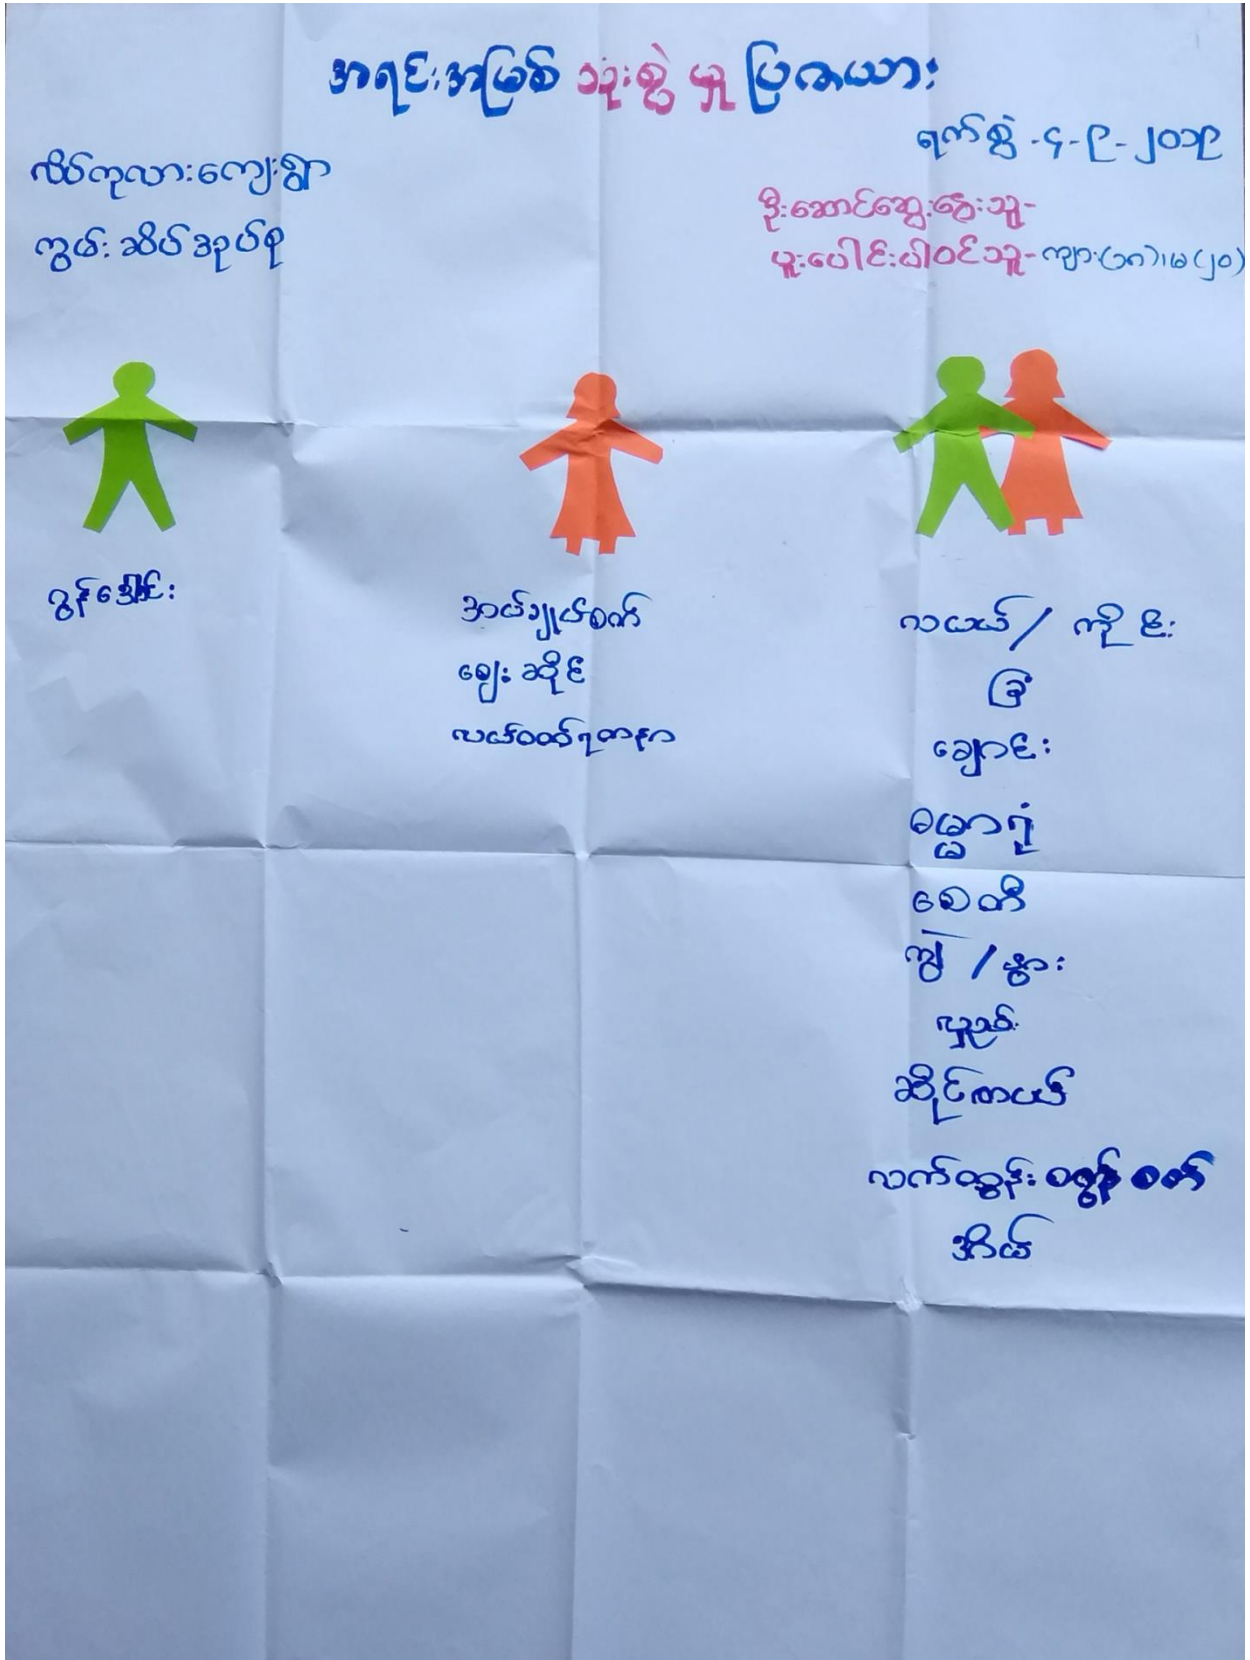 အရင်းအမြစ် သုံးစွဲ မှု ပြဇယား
ရက်စွဲ -၄-၉-၂၀၁၉
လိပ်ကုလားကျေးရွာ
ကွမ်းဆိပ်အုပ်စု
ဦးဆောင်ဆွေးနွေးသူ-
ပူးပေါင်းပါဝင်သူ-ကျား(၁၈)၊မ(၂၀)
ဂွန်ဒေါင်း
အပ်ချုပ်စက်
ဈေးဆိုင်
လက်ဝတ်ရတနာ
လယ် / ကိုင်း
ခြံ
ချောင်း
ဓမ္မာရုံ
စေတီ
ကျွဲ / နွား
လှည်း
ဆိုင်ကယ်
လက်တွန်း စက်
အိမ်